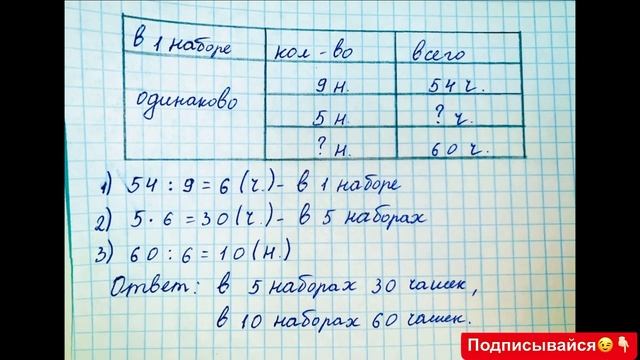 в 1 наборе кол-во всего
одинаково 9 н. 54 ч.
5 н. ? ч.
? н. 60 ч.
1) 54 : 9 = 6 (ч.) - в 1 наборе
2) 5 · 6 = 30 (ч.) - в 5 наборах
3) 60 : 6 = 10 (н.)
Ответ: в 5 наборах 30 чашек,
в 10 наборах 60 чашек.
Подписывайся😉👇